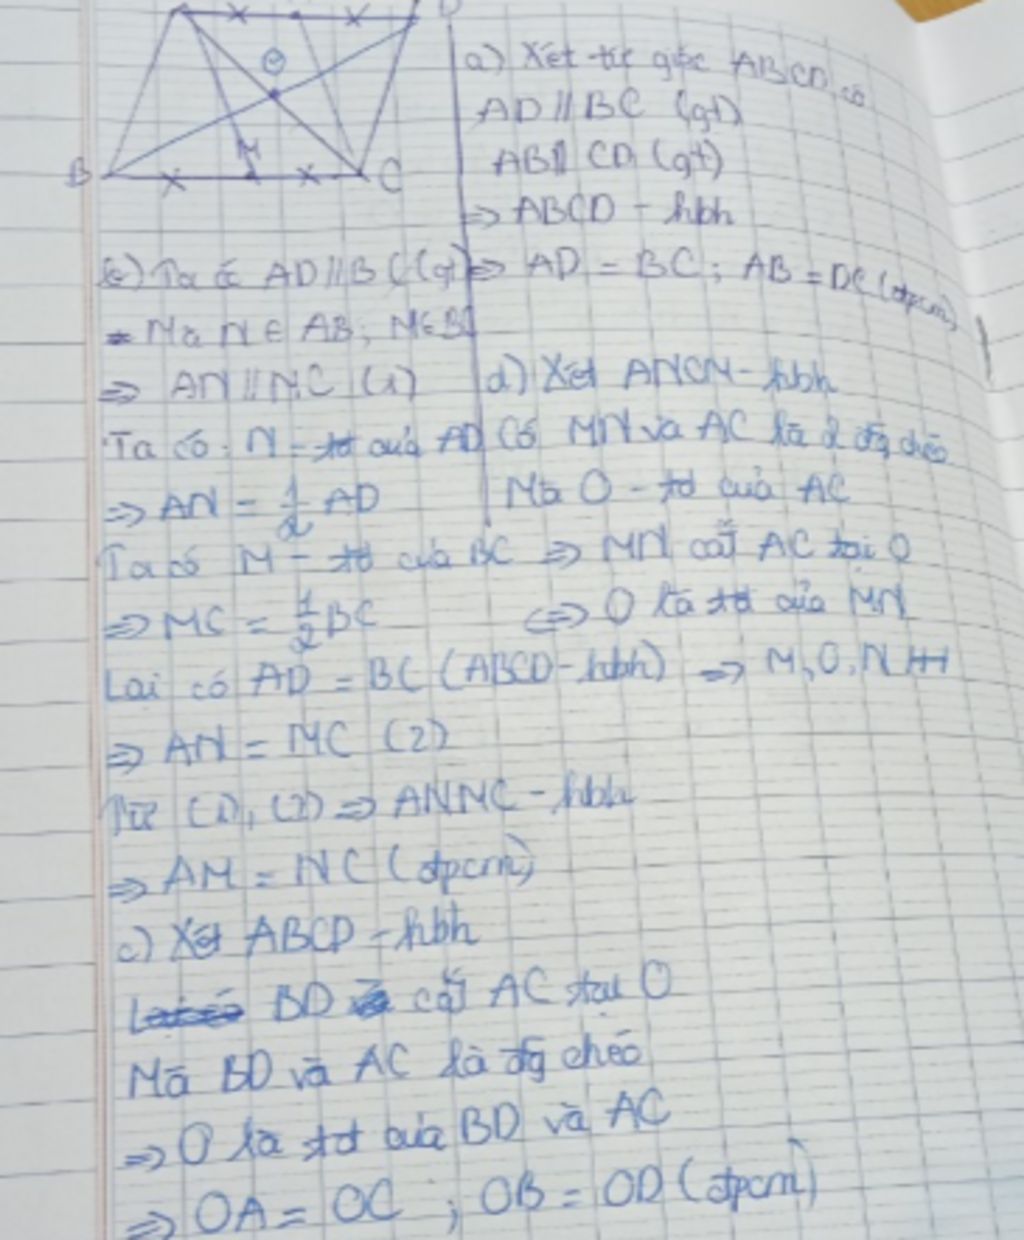 D
O
M
B
C
a) Xét tứ giác ABCD có
AD // BC (gt)
AB // CD (gt)
=> ABCD - hbh
=> AD = BC ; AB = DC (đpcm)
b) Ta có AD // BC (gt)
Mà N ∈ AB; M ∈ BC
=> AN // MC (1)
Ta có: N - tđ của AD
=> AN = 1/2 AD
Ta có M - tđ của BC
=> MC = 1/2 BC
Lại có AD = BC (ABCD - hbh)
=> AN = MC (2)
Từ (1), (2) => ANMC - hbh
=> AM = NC (đpcm)
c) Xét ABCD - hbh
BD cắt AC tại O
Mà BD và AC là đg chéo
=> O là tđ của BD và AC
=> OA = OC ; OB = OD (đpcm)
d) Xét ANCM - hbh
Có MN và AC là 2 đg chéo
Mà O - tđ của AC
=> MN cắt AC tại O
<=> O là tđ của MN
=> M, O, N